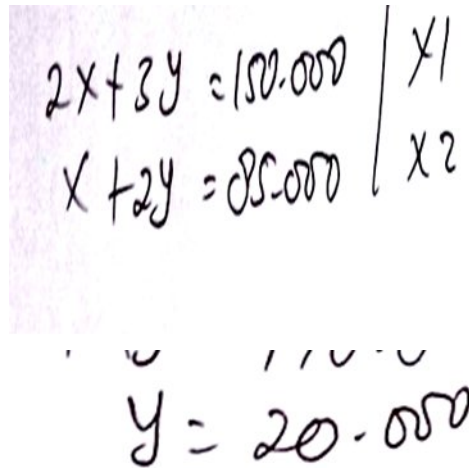 2x+3y=150.000 | x1
x+2y=85.000 | x2
y=20.000